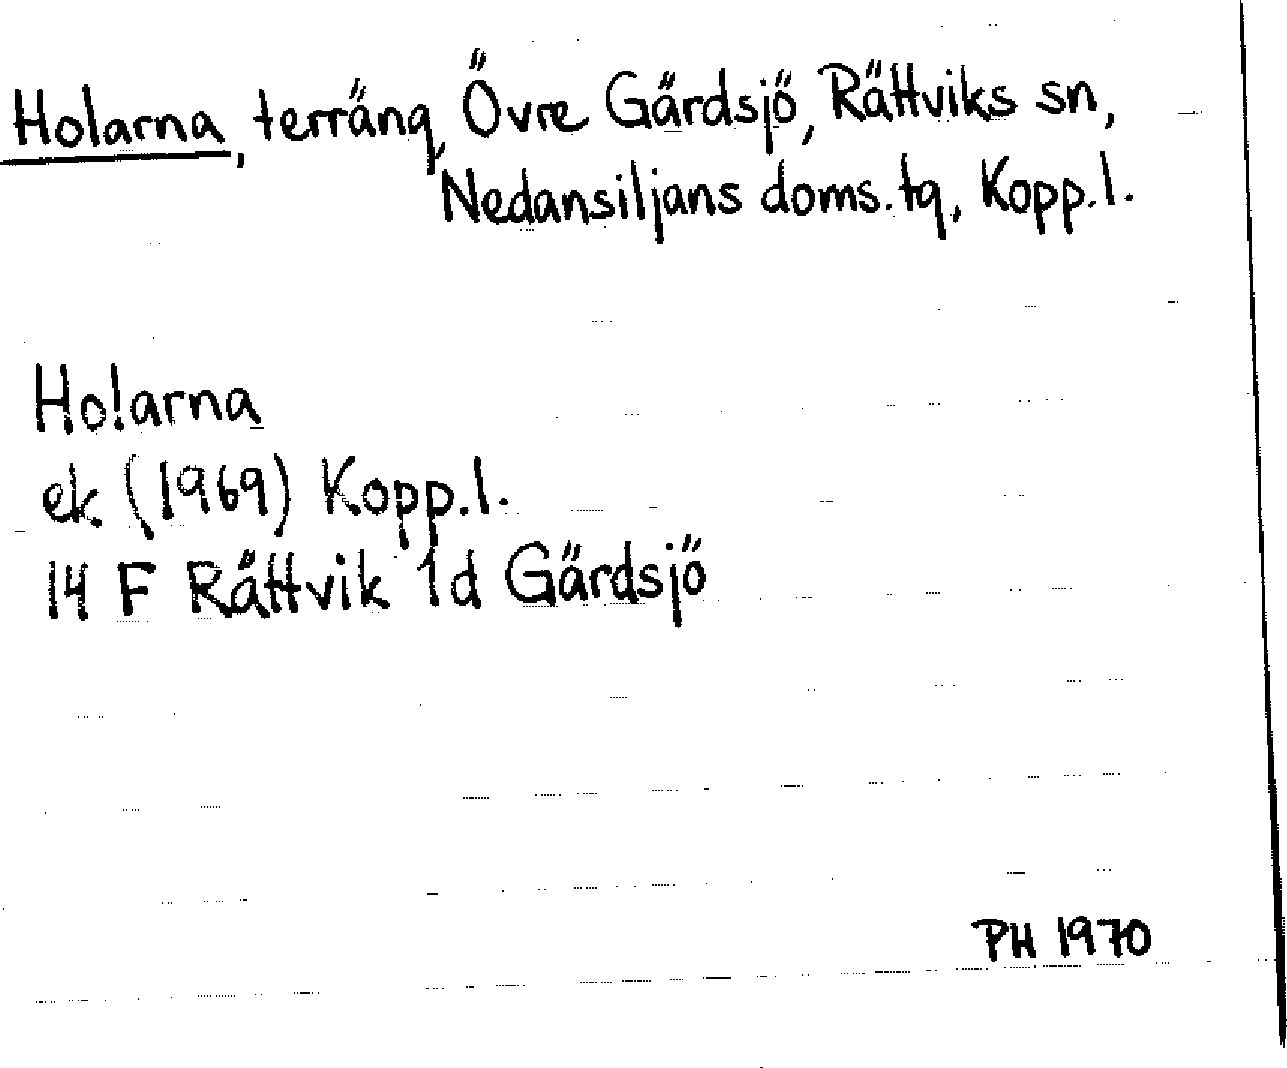 Holarna, terräng, Övre Gärdsjö, Rättviks sn,
Nedansiljans doms. tg, Kopp. l.
Holarna
ek (1969) Kopp. l.
14 F Rättvik 1d Gärdsjö
PH 1970